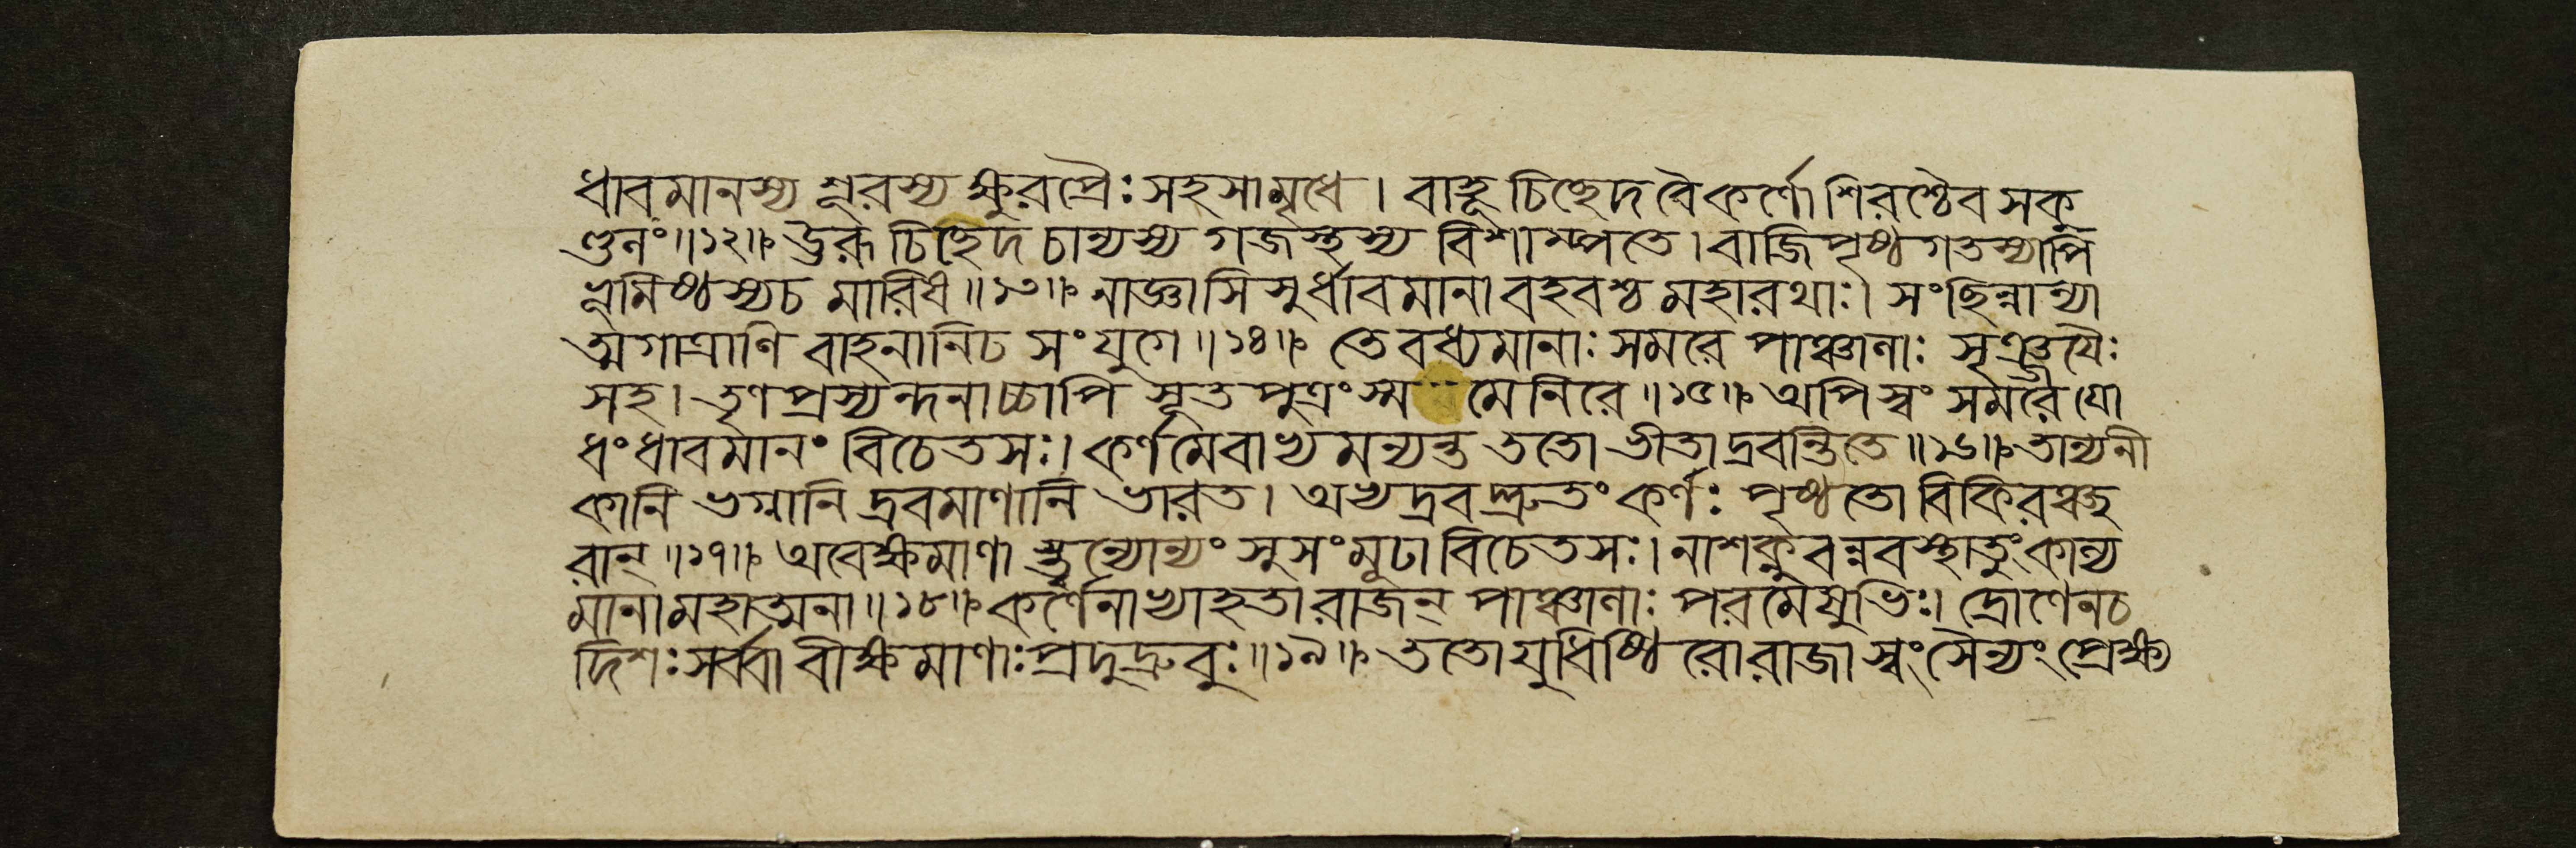 ধাবমানস্য শূরস্য ক্ষুরপ্রৈঃ সহসা মৃধে । বাহূ চিচ্ছেদ বৈ কর্ণো শিরশ্চৈব সকু
ণ্ডলং ॥ ১২ ॥ ঊরূ চিচ্ছেদ চান্যস্য গজস্থস্য বিশাম্পতে । বাজিপৃষ্ঠগতস্যাপি
ভূমিষ্ঠস্য চ মারিষ ॥ ১৩ ॥ নাজ্ঞাসিসুর্ধাবমানা বহবশ্চ মহারথাঃ । সংছিন্নান্যা
ত্মগাত্রাণি বাহনানি চ সংযুগে ॥ ১৪ ॥ তে বধ্যমানাঃ সমরে পাঞ্চালাঃ সৃঞ্জয়ৈঃ
সহ । তৃণপ্রস্যন্দনাচ্চাপি সূতপুত্রং স্ম মেনিরে ॥ ১৫ ॥ অপি স্বং সমরে যো
ধং ধাবমানং বিচেতসঃ । কর্ণমেবাভ্যমন্যন্ত ততো ভীতা দ্রবন্তি তে ॥ ১৬ ॥ তান্যনী
কানি ভগ্নানি দ্রবমাণানি ভারত । অভ্যদ্রবদ্দ্রুতং কর্ণঃ পৃষ্ঠতো বিকিরঞ্ছ
রান্ ॥ ১৭ ॥ অবেক্ষমাণা স্ত্বন্যোন্যং সুসংমূঢা বিচেতসঃ । নাশক্নুবন্নবস্থাতুং কাল্য
মানা মহাত্মনা ॥ ১৮ ॥ কর্ণেনাভ্যাহতা রাজন্ পাঞ্চালাঃ পরমেষুভিঃ । দ্রোণেন চ
দিশঃ সর্ব্বা বীক্ষমাণাঃ প্রদুদ্রুবুঃ ॥ ১৯ ॥ ততো যুধিষ্ঠিরো রাজা স্বং সৈন্যং প্রেক্ষ্য